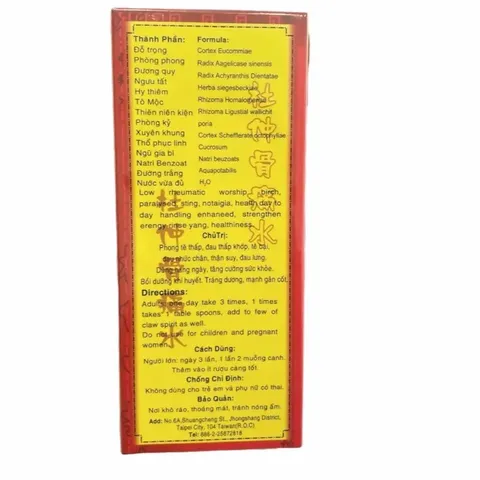 Thành Phần: Formula:
Đỗ trọng Cortex Eucommiae
Phòng phong Radix Aagelicase sinensis
Đương quy Radix Achyranthis Dientatae
Ngưu tất Herba siegesbeckiae
Hy thiêm Rhizoma Homalomenae
Tô Mộc Rhizoma Ligustial wallichit
Thiên niên kiện poria
Phòng kỷ Cortex Schefflerate octophyliae
Xuyên khung Cucrosum
Thổ phục linh Natri beuzoats
Ngũ gia bì Aquapotabilis
Natri Benzoat H₂O
Đường trắng
Nước vừa đủ
Low rheumatic worship, birch,
paralyzed, sting, notaigia, health day to
day handling enhaneed, strengthen
erengy rinse yang, healthiness.
ChủTrị:
Phong tê thấp, đau thấp khớp, tê bại,
đau nhức chân, thận suy, đau lưng.
Dùng hàng ngày, tăng cường sức khỏe.
Bồi dưỡng khí huyết. Tráng dương, mạnh gân cốt.
Directions:
Adults one day take 3 times, 1 times
takes 1 table spoons, add to few of
claw spirit as well.
Do not use for children and pregnant
women.
Cách Dùng:
Người lớn: ngày 3 lần, 1 lần 2 muỗng canh.
Thêm vào ít rượu càng tốt.
Chống Chỉ Định:
Không dùng cho trẻ em và phụ nữ có thai.
Bảo Quản:
Nơi khô ráo, thoáng mát, tránh nóng ẩm.
Add: No.6A,Shuangcheng St., Jhongshang District,
Taipei City, 104 Taiwan(R.O.C)
Tel: 886-2-25672818
杜仲骨痛水
杜仲骨痛水